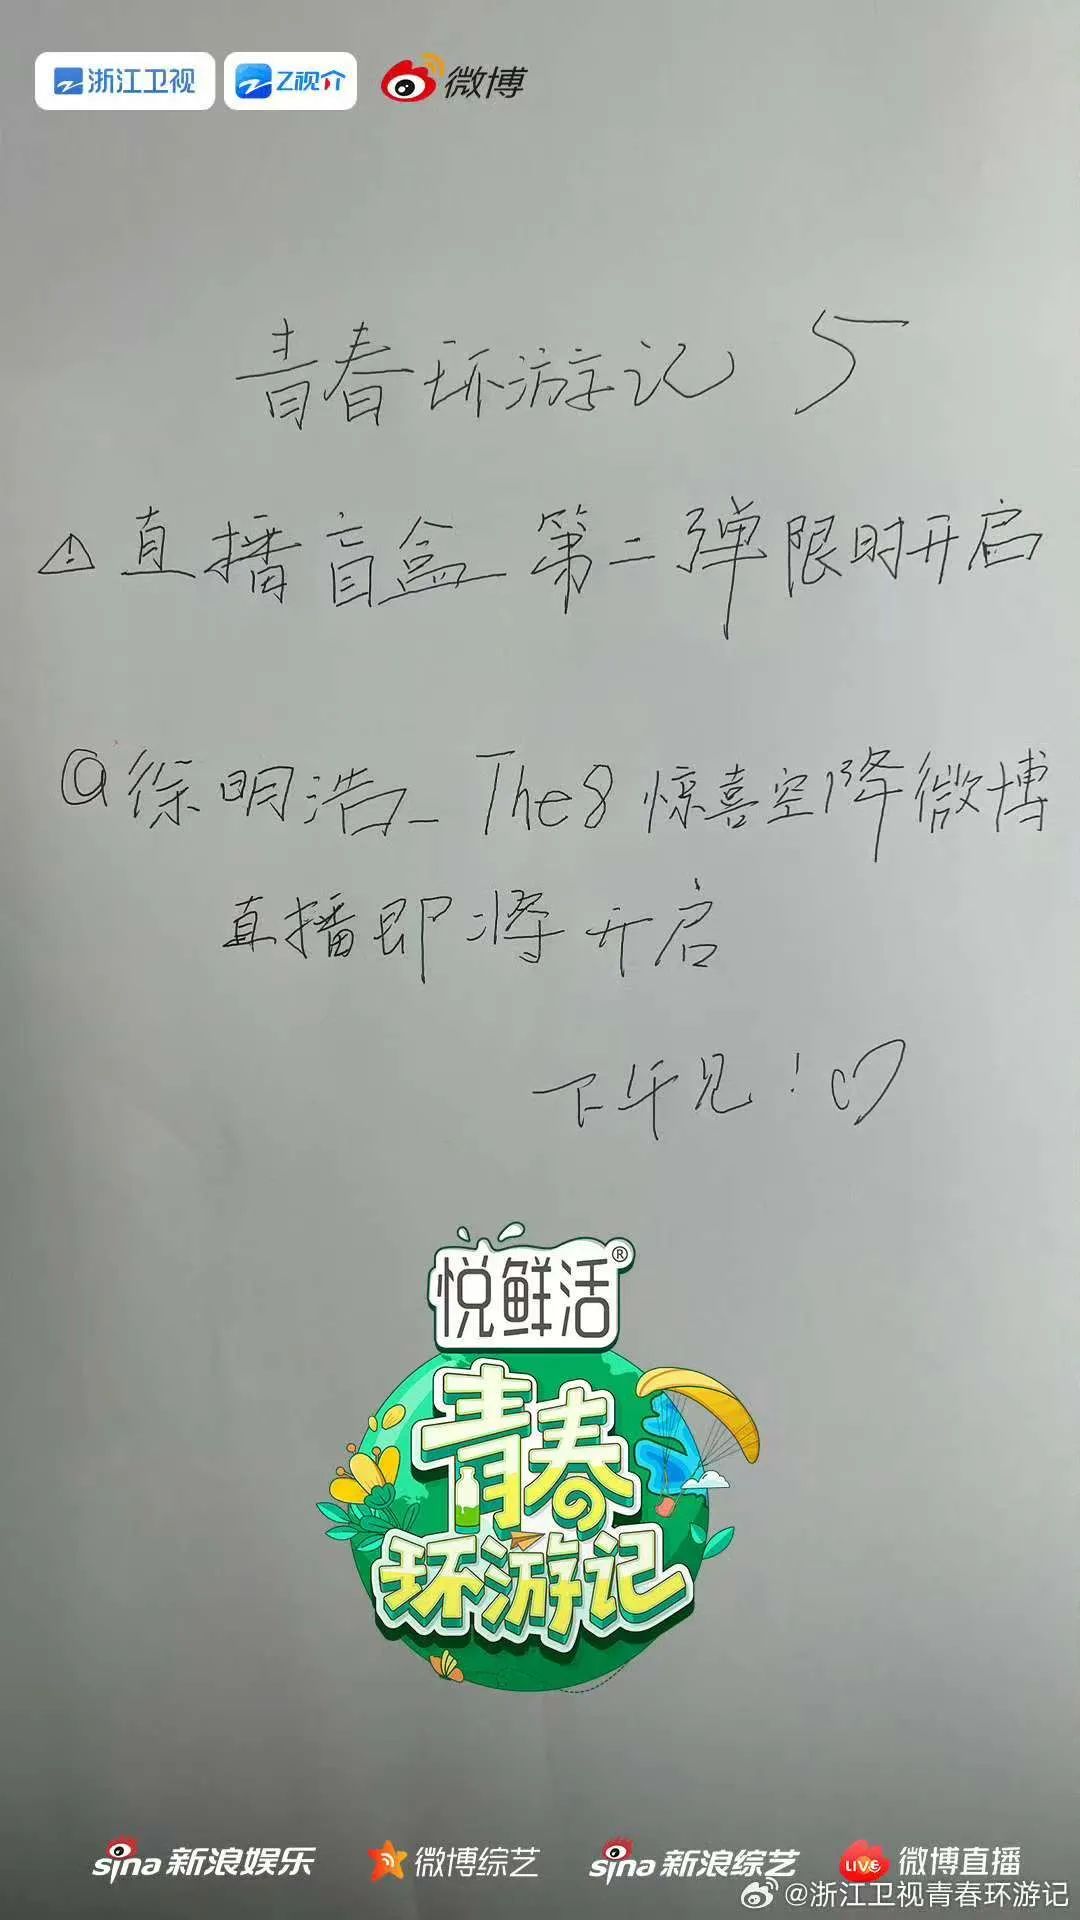 浙江卫视 Z视介 微博
青春环游记 5
⚠直播盲盒 第二弹限时开启
@徐明浩_The8 惊喜空降微博
直播即将开启
下午见！♡
悦鲜活®
青春
环游记
sina新浪娱乐 微博综艺 sina新浪综艺 LIVE 微博直播
@浙江卫视青春环游记